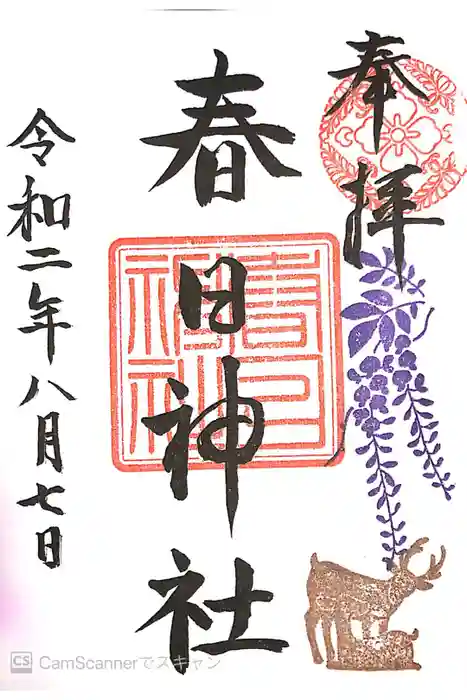 奉拝
春日神社
令和二年八月七日
春日
神社
CS CamScannerでスキャン